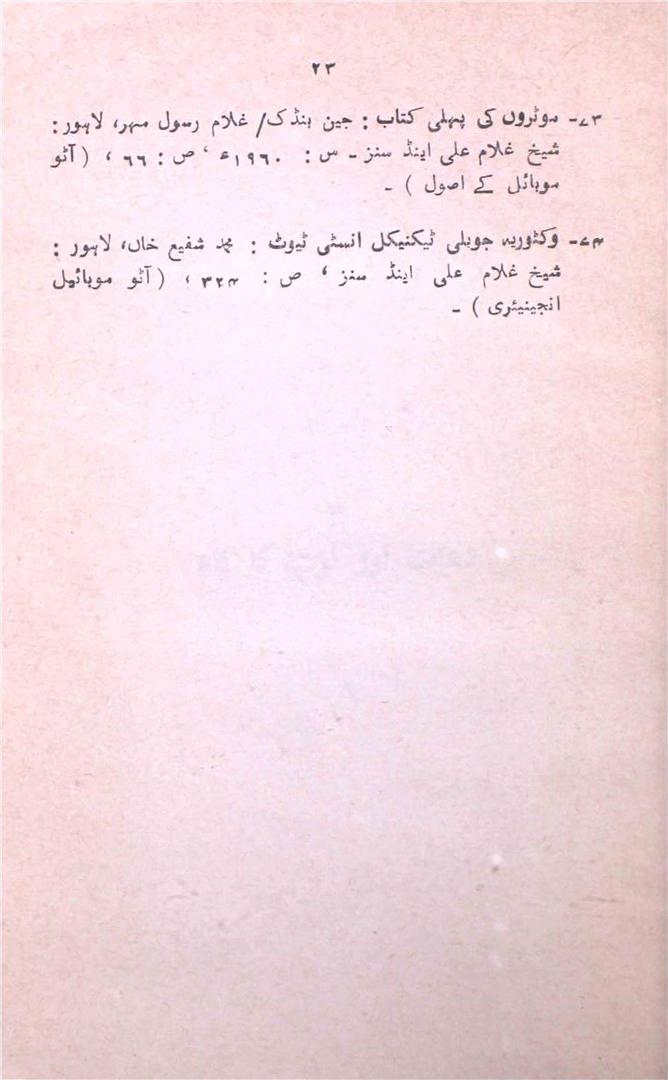 ۲۳
۷۳۔ موٹروں کی پہلی کتاب : جین بنڈک/ غلام رسول مہر، لاہور :
شیخ غلام علی اینڈ سنز ۔ س : ۱۹۶۰ء ، ص : ۶۶ ، ( آٹو
موبائل کے اصول ) ۔
۷۴۔ وکٹوریہ جوبلی ٹیکنیکل انسٹی ٹیوٹ : محمد شفیع خاں، لاہور :
شیخ غلام علی اینڈ سنز ، ص : ۳۲۴ ، ( آٹو موبائیل
انجینیئری ) ۔